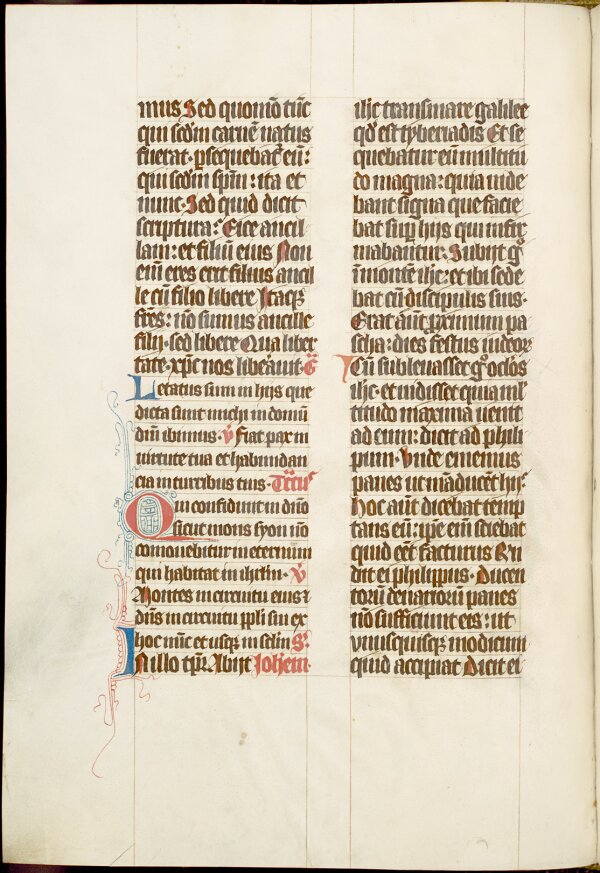 mus Sed quomō tūc
qui scďm carnē natus
fuerat· ꝑsequebat᷑ eū:
qui scďm spm̄: ita et
nunc· Sed quid dicit
scriptura: Eice ancil
lam: et filiū eius Non
em̄ eres erit filius ancil
le cū filio libere Itaqꝫ
frēs: nō sumus ancille
filij· sed libere Qua liber
tate· xp̄c nos libeauit· G̅
Letatus sum in hijs que
dicta sunt michi in domū
dm̄ ibimus· v̄ Fiat pax in
uirtute tua et habundan
cia in turribus tuis· Tc̄tus
Qui confidunt in dn̄o
sicut mons syon nō
comouebitur in eternum
qui habitat in ihrl̄m· v̄
Montes in circuitu eius ⁊
dn̄s in circuitu ppl̄i sui ex
hoc nūc et usqꝫ in sclm̄ S:
In illo tp̄r Abijt Johem·
ihc̄ transmare galilee
qd̄ est tyberiadis Et se
quebatur eū multitu
do magna: quia uide
bant signa que facie
bat suꝑ hijs qui infir
mabantur: Subijt gͦ
ī monte ihc̄: et ibi sede
bat cū discipulis suis·
Erat aūt proximum pa
scha: dies festus iudeoꝝ
Cū subleuasset gͦ oclōs
ihc̄· et uidisset quia ml̄
titudo maxima uenit
ad eum: dicit ad phili
pum· Vnde ememus
panes ut māducēt hij:
hoc aūt dicebat temp
tans eū: ip̄e em̄ sciebat
quid eēt facturus Rn̄
dit ei philippus· Ducen
torū denariorū panes
nō sufficiunt eis: ut
vnusquisqꝫ modicum
quid accipiat Dicit ei